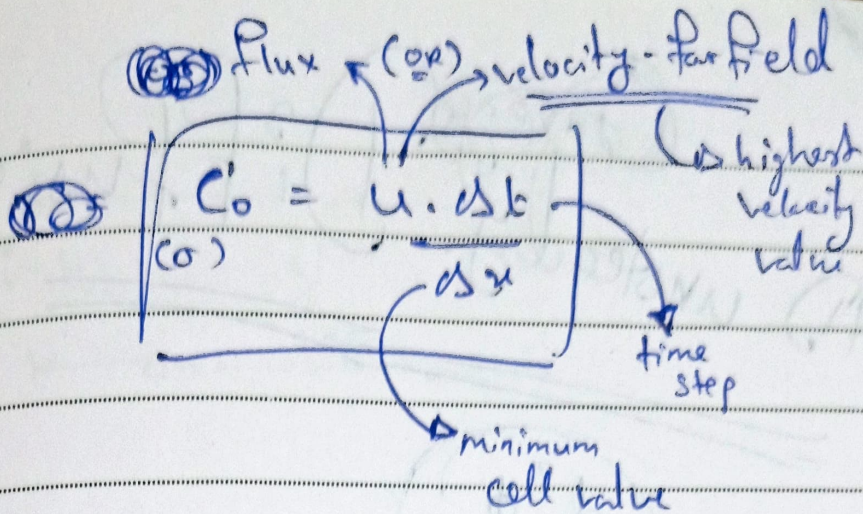 flux (or) velocity-farfield
highest
velocity
value
Co = u. Δt
(σ)
Δx
time
step
minimum
cell value